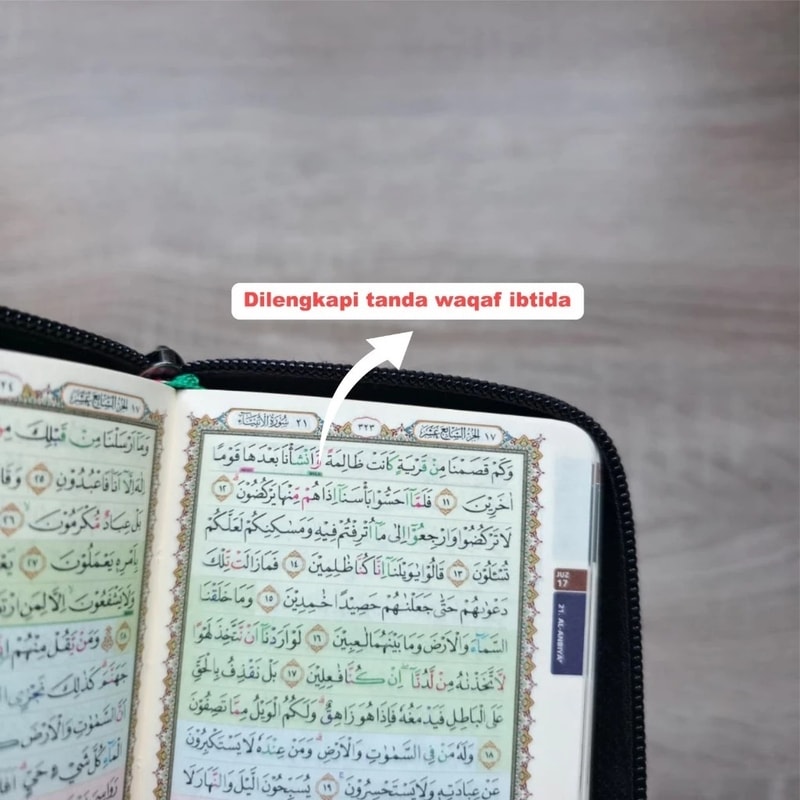 Dilengkapi tanda waqaf ibtida
١٧ الجزء السابع عشر
٣٢٣
سورة الانبياء ٢١
وَكَمْ قَصَمْنَا مِنْ قَرْيَةٍ كَانَتْ ظَالِمَةً وَّاَنْشَأْنَا بَعْدَهَا قَوْمًا
اٰخَرِيْنَ ١١ فَلَمَّآ اَحَسُّوْا بَأْسَنَآ اِذَا هُمْ مِّنْهَا يَرْكُضُوْنَ ١٢
لَا تَرْكُضُوْا وَارْجِعُوْٓا اِلٰى مَآ اُتْرِفْتُمْ فِيْهِ وَمَسٰكِنِكُمْ لَعَلَّكُمْ
تُسْـَٔلُوْنَ ١٣ قَالُوْا يٰوَيْلَنَآ اِنَّا كُنَّا ظٰلِمِيْنَ ١٤ فَمَا زَالَتْ تِّلْكَ
دَعْوٰىهُمْ حَتّٰى جَعَلْنٰهُمْ حَصِيْدًا خٰمِدِيْنَ ١٥ وَمَا خَلَقْنَا
السَّمَاۤءَ وَالْاَرْضَ وَمَا بَيْنَهُمَا لٰعِبِيْنَ ١٦ لَوْ اَرَدْنَآ اَنْ نَّتَّخِذَ لَهْوًا
لَّاتَّخَذْنٰهُ مِنْ لَّدُنَّآ اِنْ كُنَّا فٰعِلِيْنَ ١٧ بَلْ نَقْذِفُ بِالْحَقِّ
عَلَى الْبَاطِلِ فَيَدْمَغُهٗ فَاِذَا هُوَ زَاهِقٌۗ وَلَكُمُ الْوَيْلُ مِمَّا تَصِفُوْنَ
١٨ وَلَهٗ مَنْ فِى السَّمٰوٰتِ وَالْاَرْضِۗ وَمَنْ عِنْدَهٗ لَا يَسْتَكْبِرُوْنَ
عَنْ عِبَادَتِهٖ وَلَا يَسْتَحْسِرُوْنَ ١٩ يُسَبِّحُوْنَ الَّيْلَ وَالنَّهَارَ لَا
JUZ
17
21. AL-ANBIYA'
١٧ الجزء السابع عشر
وَمَآ اَرْسَلْنَا مِنْ قَبْلِكَ
اِلٰهَ اِلَّآ اَنَا۠ فَاعْبُدُوْنِ ٢٥
بَلْ عِبَادٌ مُّكْرَمُوْنَ ٢٦
بِاَمْرِهٖ يَعْمَلُوْنَ ٢٧
وَلَا يَشْفَعُوْنَ اِلَّا لِمَنِ
٢٨ وَمَنْ يَّقُلْ مِنْهُمْ
جَهَنَّمَۗ كَذٰلِكَ نَجْزِى
اَنَّ السَّمٰوٰتِ وَالْاَرْضَ
الْمَاۤءِ كُلَّ شَيْءٍ حَيٍّۗ